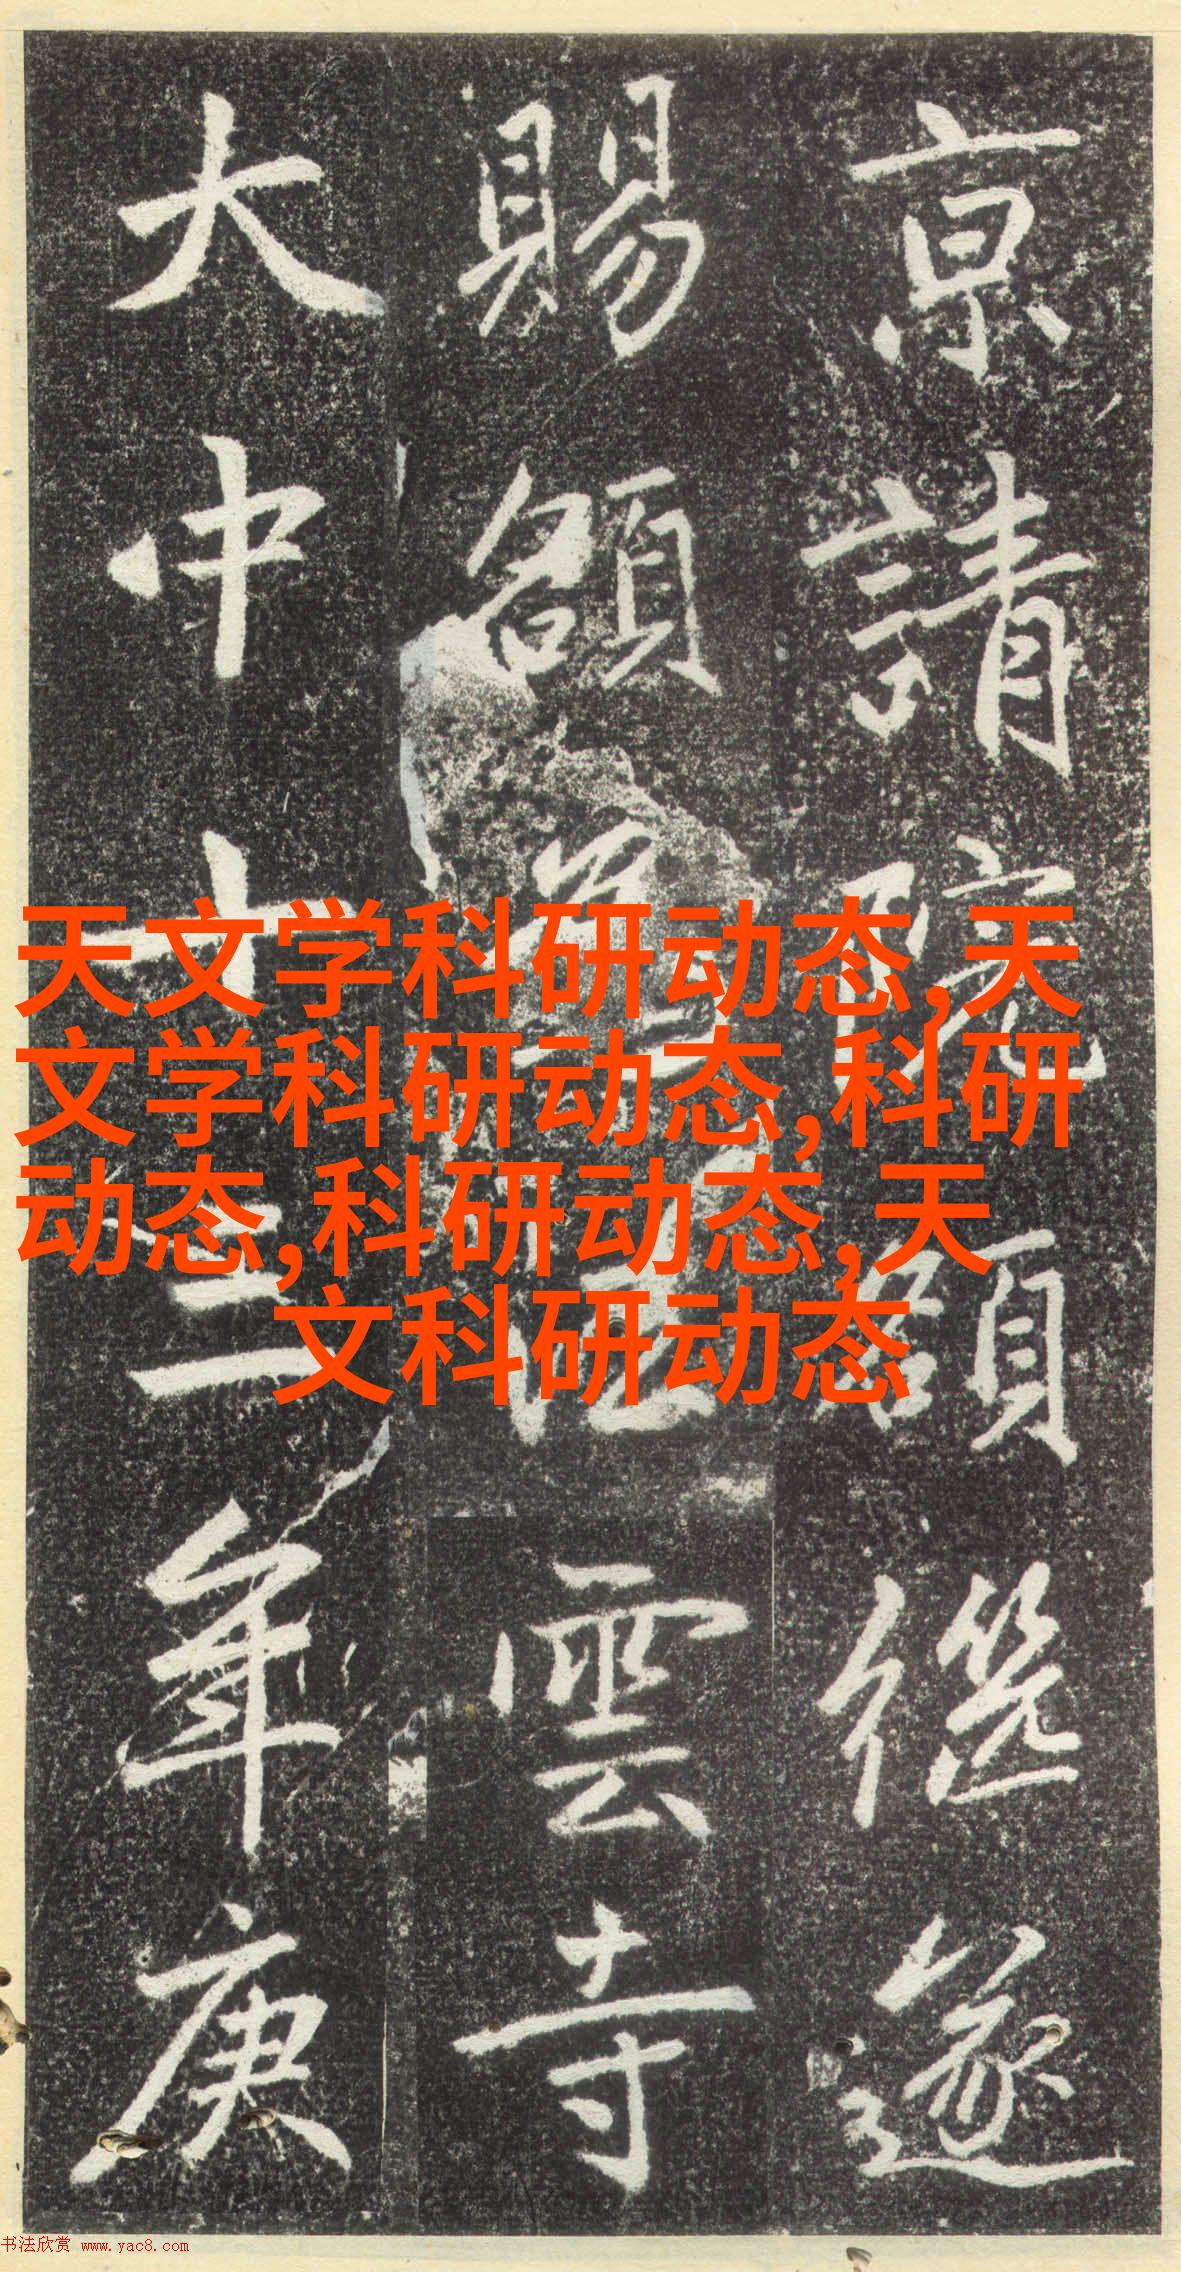 京請院額遂
賜額法雲寺
大中十三年庚
天文学科研动态,天
文学科研动态,科研
动态,科研动态,天
文科研动态
书法欣赏 www.yac8.com